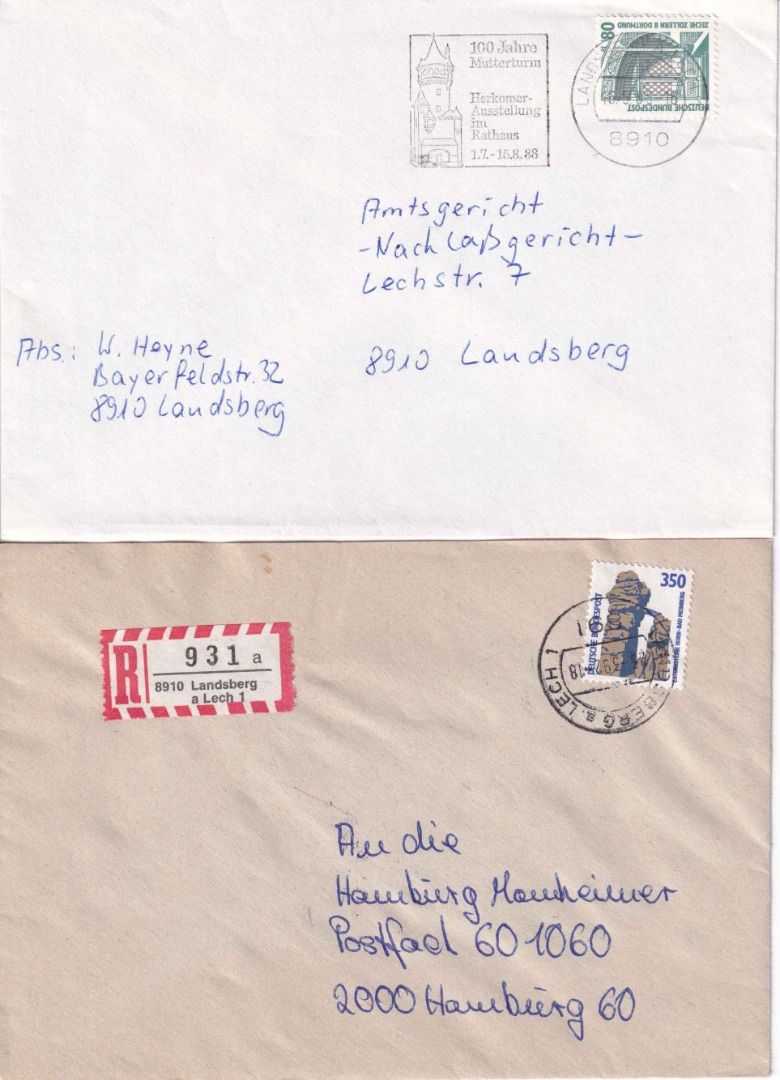 100 Jahre
Mutterturm
Herkomer-
Ausstellung
im
Rathaus
1.7.-15.8.88
80
ZECHE ZOLLERN II DORTMUND
DEUTSCHE BUNDESPOST
8910
Amtsgericht
-Nachlaßgericht-
Lechstr. 7
8910 Landsberg
Abs.: W. Heyne
Bayerfeldstr. 32
8910 Landsberg
R
931 a
8910 Landsberg
a Lech 1
350
DEUTSCHE BUNDESPOST
EXTERNSTEINE HORN-BAD MEINBERG
BERG a. LECH 1
An die
Hamburg Manheimer
Postfach 60 1060
2000 Hamburg 60